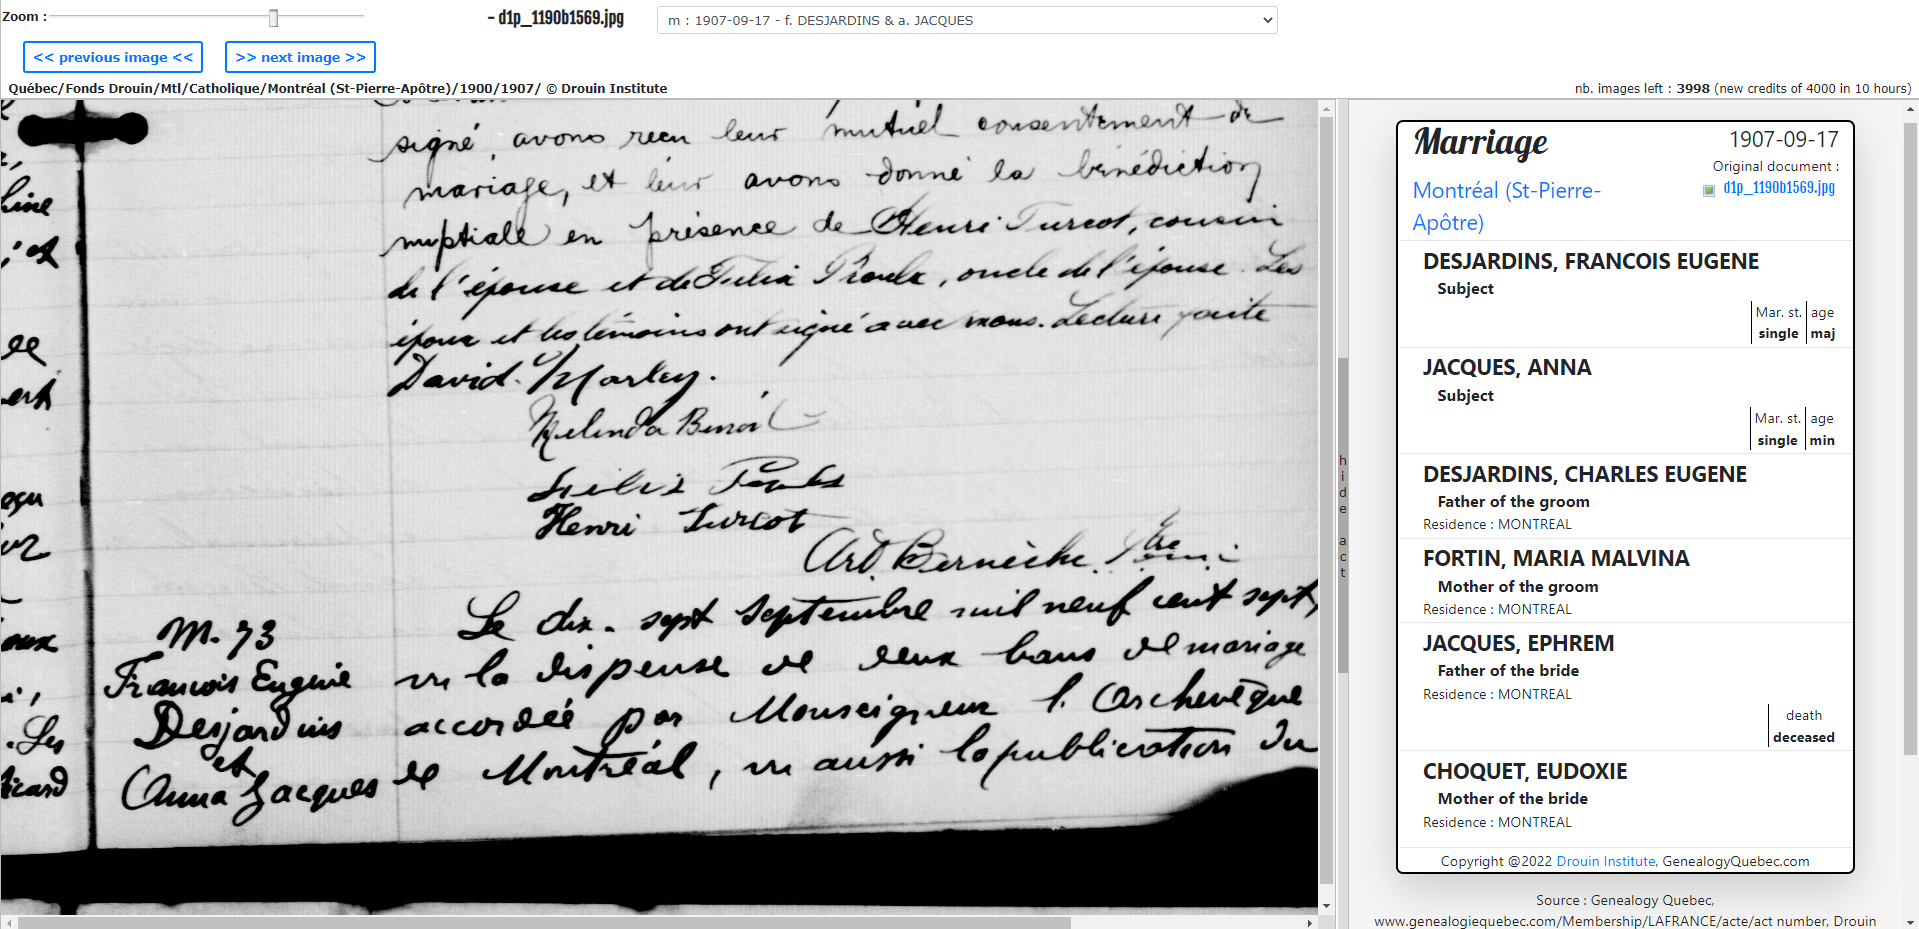 Zoom :
- d1p_1190b1569.jpg
m : 1907-09-17 - f. DESJARDINS & a. JACQUES
<< previous image <<
>> next image >>
Québec/Fonds Drouin/Mtl/Catholique/Montréal (St-Pierre-Apôtre)/1900/1907/ © Drouin Institute
nb. images left : 3998 (new credits of 4000 in 10 hours)
signé, avons reçu leur mutuel consentement de
mariage, et leur avons donné la bénédiction
nuptiale en présence de Henri Turcot, cousin
de l'épouse et de Félix Proulx, oncle de l'épouse. Les
époux et les témoins ont signé avec nous. Lecture faite
David Morley.
Melinda Benoit
Félix Proulx
Henri Turcot
Ard. Bernèche, Ptre
M. 73
Francois Eugène
Desjardins
et
Anna Jacques
Le dix-sept septembre mil neuf cent sept,
vu la dispense de deux bans de mariage
accordée par Monseigneur l'Archevêque
de Montréal, vu aussi la publication du
hide act
Marriage
1907-09-17
Original document :
d1p_1190b1569.jpg
Montréal (St-Pierre-
Apôtre)
DESJARDINS, FRANCOIS EUGENE
Subject
Mar. st. age
single maj
JACQUES, ANNA
Subject
Mar. st. age
single min
DESJARDINS, CHARLES EUGENE
Father of the groom
Residence : MONTREAL
FORTIN, MARIA MALVINA
Mother of the groom
Residence : MONTREAL
JACQUES, EPHREM
Father of the bride
Residence : MONTREAL
death
deceased
CHOQUET, EUDOXIE
Mother of the bride
Residence : MONTREAL
Copyright @2022 Drouin Institute, GenealogyQuebec.com
Source : Genealogy Quebec,
www.genealogiequebec.com/Membership/LAFRANCE/acte/act number, Drouin